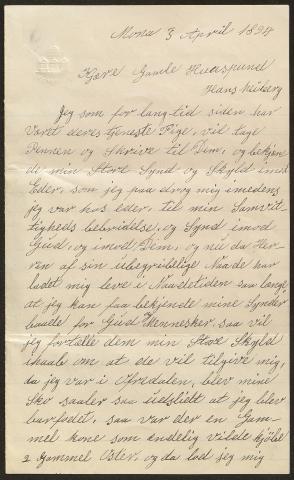 Mona 3 April 1898
Kjære Gamle Huusbund
Hans Neiberg
Jeg som for lang tid siden har
Været deres tjeneste Pige, vil tage
Pennen og Skrive til Dem, og bekjen
de min Store Synd og Skyld imod
Eder, som jeg paa drog mig imedens
jeg var hos eder, til min Samvit-
tigheds bebridelse, og Synd imod
Gud, og imod Dem, og nu da Her-
ren af sin ubegribelige Naade har
ladet mig leve i Naadetiden saa længe
at jeg kan faa bekjende mine Synder
baade for Gud & Mennesker, saa vil
jeg fortelle dem min Store Skyld
ihaab om at de vil tilgive mig,
da jeg var i Ofredalen, blev mine
Sko saaler saa udslidt at jeg blev
barfodet, saa var der en Gam-
mel kone som endelig vilde kjöbe
2 Gammel Oster, og da lod jeg mig